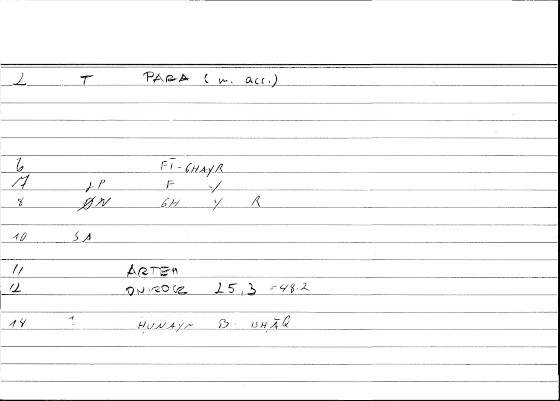 2 T PARA (m. acc.)
6 FĪ-GHAYR
7 JP F Y
8 ØN GH Y R
10 SA
11 ARTEM
12 ONIROCR 25,3 =48.2
14 ? HUNAYN B. ISHĀQ